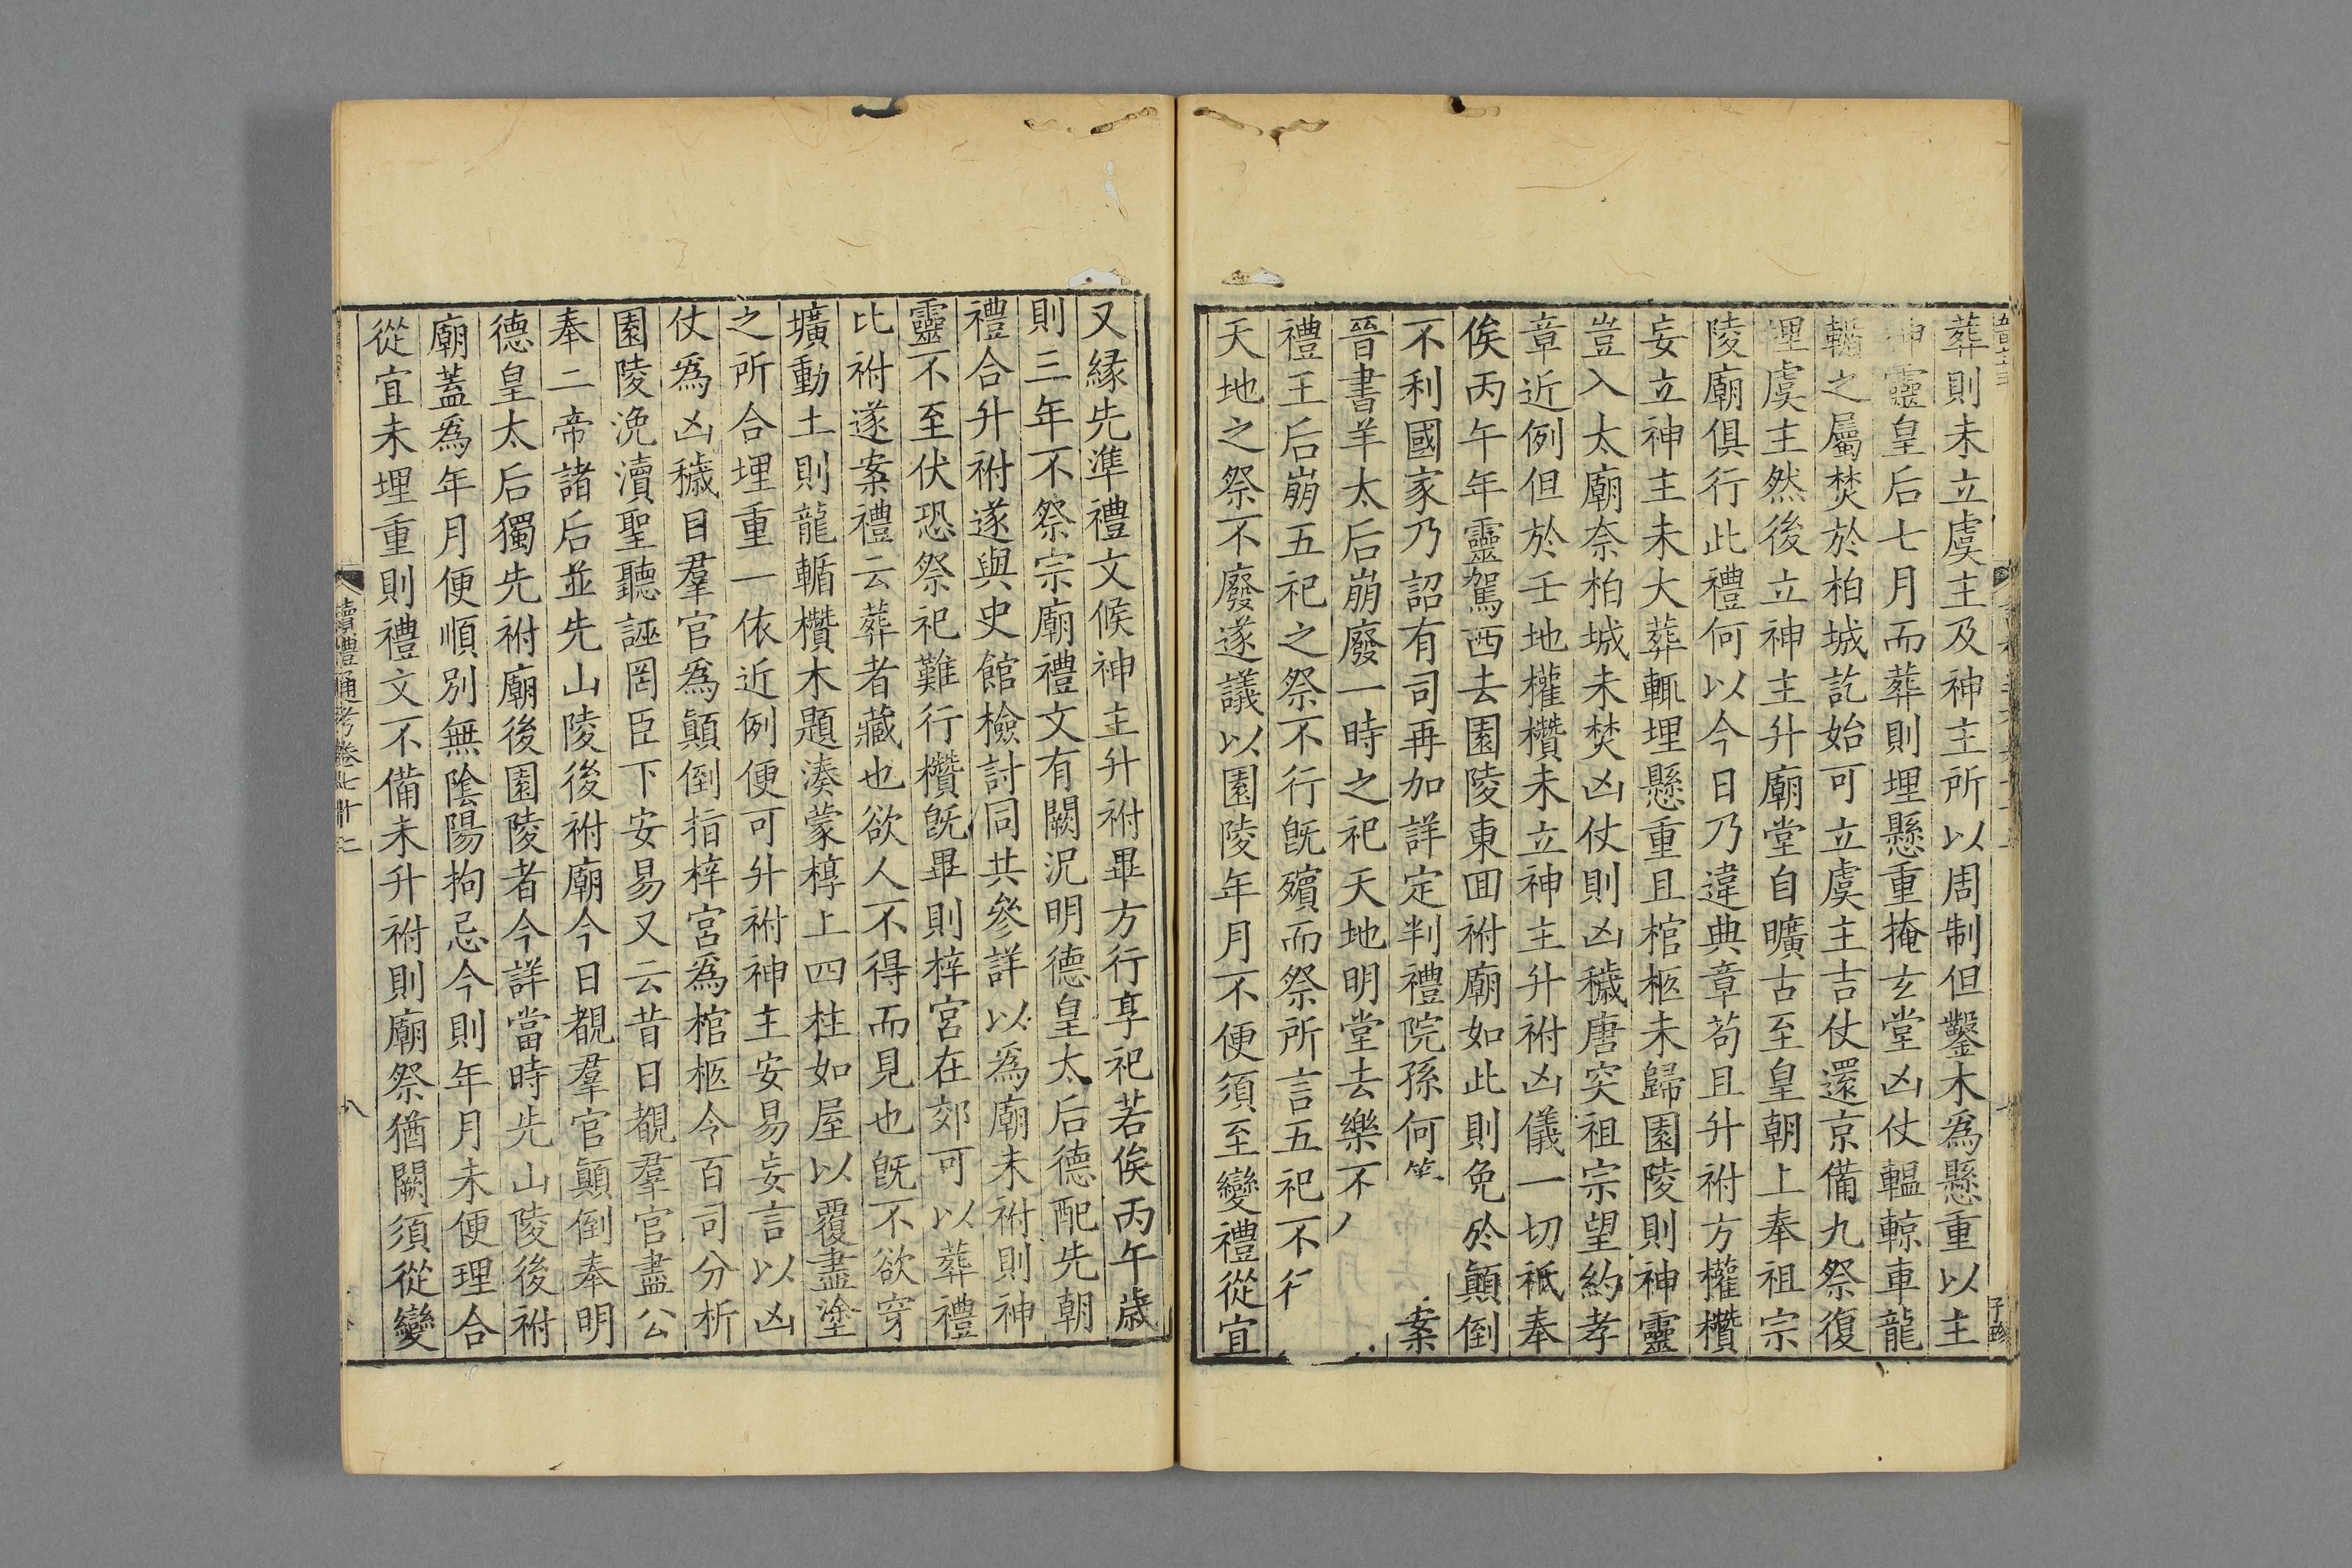 葬則未立虞主及神主所以周制但鑿木爲懸重以主
神靈皇后七月而葬則埋懸重掩玄堂凶仗轀輬車龍
輴之屬焚於柏城訖始可立虞主吉仗還京備九祭復
埋虞主然後立神主升廟堂自曠古至皇朝上奉祖宗
陵廟俱行此禮何以今日乃違典章苟且升祔方權欑
妄立神主未大葬輒埋懸重且棺柩未歸園陵則神靈
豈入太廟奈柏城未焚凶仗則凶穢唐突祖宗望約孝
章近例但於壬地權欑未立神主升祔凶儀一切祗奉
俟丙午年靈駕西去園陵東回祔廟如此則免於顚倒
不利國家乃詔有司再加詳定判禮院孫何案
晉書羊太后崩廢一時之祀天地明堂去樂不
禮王后崩五祀之祭不行旣殯而祭所言五祀不行
天地之祭不廢遂議以園陵年月不便須至變禮從宜
又緣先準禮文候神主升祔畢方行享祀若俟丙午歲
則三年不祭宗廟禮文有闕況明德皇太后德配先朝
禮合升祔遂與史館檢討同共參詳以爲廟未祔則神
靈不至伏恐祭祀難行欑旣畢則梓宮在郊可以葬禮
比祔遂案禮云葬者藏也欲人不得而見也旣不欲穿
壙動土則龍輴欑木題湊蒙槨上四柱如屋以覆盡塗
之所合埋重一依近例便可升祔神主安易妄言以凶
仗爲凶穢目羣官爲顚倒指梓宮爲棺柩令百司分析
園陵浼瀆聖聽誣罔臣下安易又云昔日覩羣官盡公
奉二帝諸后並先山陵後祔廟今日覩羣官顚倒奉明
德皇太后獨先祔廟後園陵者今詳當時先山陵後祔
廟蓋爲年月便順別無陰陽拘忌今則年月未便理合
從宜未埋重則禮文不備未升祔則廟祭猶闕須從變
讀禮通考卷七十二
八